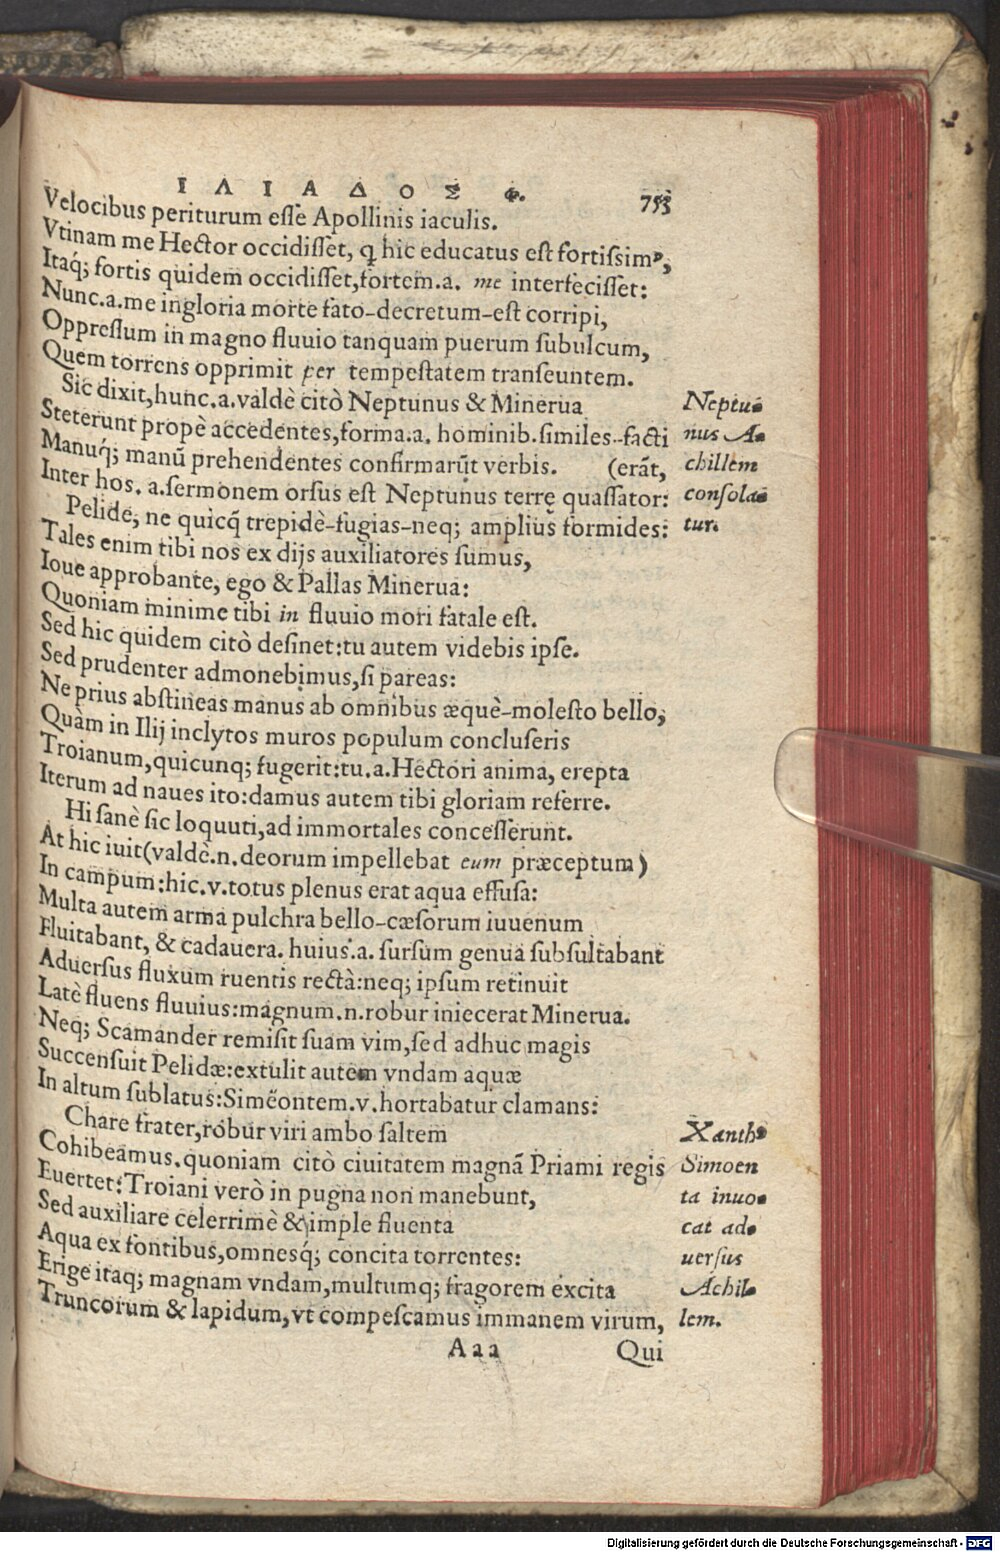 ΙΛΙΑΔΟΣ Φ. 753
Velocibus periturum eſſe Apollinis iaculis.
Vtinam me Hector occidiſſet, ꝗ hic educatus eſt fortiſsimꝰ,
Itaq́; fortis quidem occidiſſet,fortem.a. me interfeciſſet:
Nunc.a.me ingloria morte fato-decretum-eſt corripi,
Oppreſſum in magno fluuio tanquam puerum ſubulcum,
Quem torrens opprimit per tempeſtatem tranſeuntem.
Sic dixit,hunc.a.valdè citò Neptunus & Minerua
Steterunt propè accedentes,forma.a. hominib.ſimiles-facti
Manuq́; manū prehendentes confirmarūt verbis. (erāt,
Inter hos. a.ſermonem orſus eſt Neptunus terrę quaſſator:
Pelide, ne quicq̃ trepidè-fugias-neq; amplius formides:
Tales enim tibi nos ex dijs auxiliatores ſumus,
Ioue approbante, ego & Pallas Minerua:
Quoniam minime tibi in fluuio mori fatale eſt.
Sed hic quidem citò deſinet:tu autem videbis ipſe.
Sed prudenter admonebimus,ſi pareas:
Ne prius abſtineas manus ab omnibus æquè-moleſto bello,
Quàm in Ilij inclytos muros populum concluſeris
Troianum,quicunq; fugerit:tu.a.Hectori anima, erepta
Iterum ad naues ito:damus autem tibi gloriam referre.
Hi ſanè ſic loquuti,ad immortales conceſſerunt.
At hic iuit(valdè.n.deorum impellebat eum præceptum)
In campum:hic.v.totus plenus erat aqua effuſa:
Multa autem arma pulchra bello-cæſorum iuuenum
Fluitabant, & cadauera. huius.a. ſurſum genua ſubſultabant
Aduerſus fluxum ruentis rectà:neq; ipſum retinuit
Latè fluens fluuius:magnum.n.robur iniecerat Minerua.
Neq; Scamander remiſit ſuam vim,ſed adhuc magis
Succenſuit Pelidæ:extulit autem vndam aquæ
In altum ſublatus:Simëontem.v.hortabatur clamans:
Chare frater,robur viri ambo ſaltem
Cohibeamus.quoniam citò ciuitatem magnā Priami regis
Euertet:Troiani verò in pugna non manebunt,
Sed auxiliare celerrimè & imple fluenta
Aqua ex fontibus,omnesq́; concita torrentes:
Erige itaq; magnam vndam,multumq; fragorem excita
Truncorum & lapidum,vt compeſcamus immanem virum,
Aaa Qui
Neptu-
nus A-
chillem
conſola-
tur.
Xanthꝰ
Simoen
ta inuo-
cat ad-
uerſus
Achil-
lem.
Digitalisierung gefördert durch die Deutsche Forschungsgemeinschaft - DFG